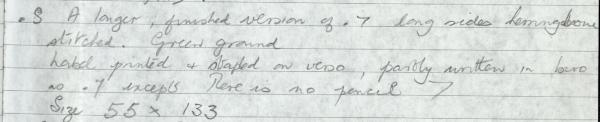 .8 A longer, finished version of .7 long sides herringbone
stitched. Green ground
Label printed & stapled on verso, partly written in biro
as .7 excepts There is no pencil 7
Size 55 x 133